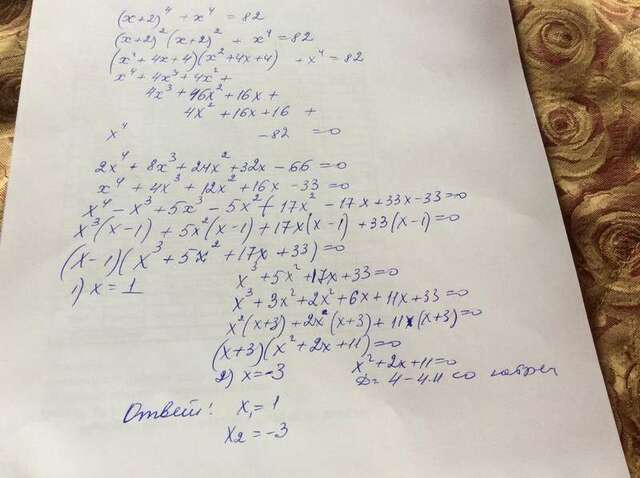 (x+2)⁴ + x⁴ = 82
(x+2)² (x+2)² + x⁴ = 82
(x²+4x+4)(x²+4x+4) + x⁴ = 82
x⁴ + 4x³ + 4x² +
4x³ + 16x² + 16x +
4x² + 16x + 16 +
x⁴ - 82 = 0
2x⁴ + 8x³ + 24x² + 32x - 66 = 0
x⁴ + 4x³ + 12x² + 16x - 33 = 0
x⁴ - x³ + 5x³ - 5x² + 17x² - 17x + 33x - 33 = 0
x³(x-1) + 5x²(x-1) + 17x(x-1) + 33(x-1) = 0
(x-1)(x³ + 5x² + 17x + 33) = 0
1) x = 1 x³ + 5x² + 17x + 33 = 0
x³ + 3x² + 2x² + 6x + 11x + 33 = 0
x²(x+3) + 2x(x+3) + 11(x+3) = 0
(x+3)(x² + 2x + 11) = 0
2) x = -3 x² + 2x + 11 = 0
D = 4 - 4·11 < 0
Ответ: x₁ = 1
x₂ = -3